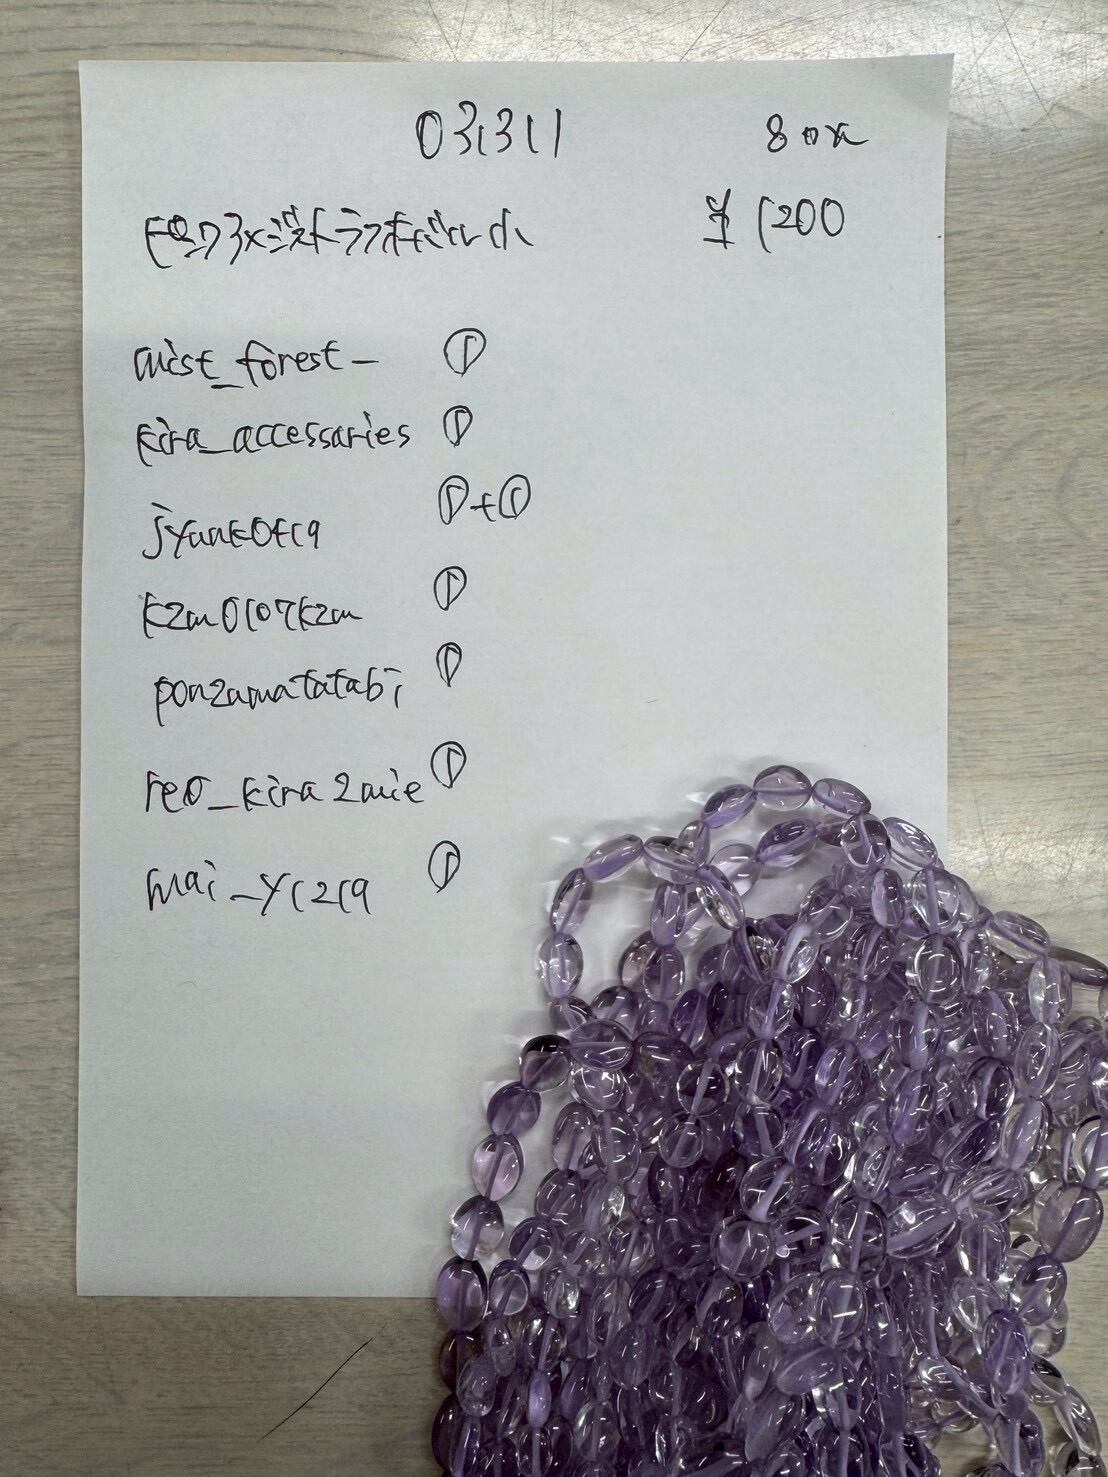 031311 80x
ピンクアメジストラフオーバル小 ¥1200
mist_forest_ ①
kira_accessaries ①
jyunkoti9 ①+①
kzm0107kzm ①
ponzumatatabi ①
reo_kira2mie ①
mai_y1219 ①